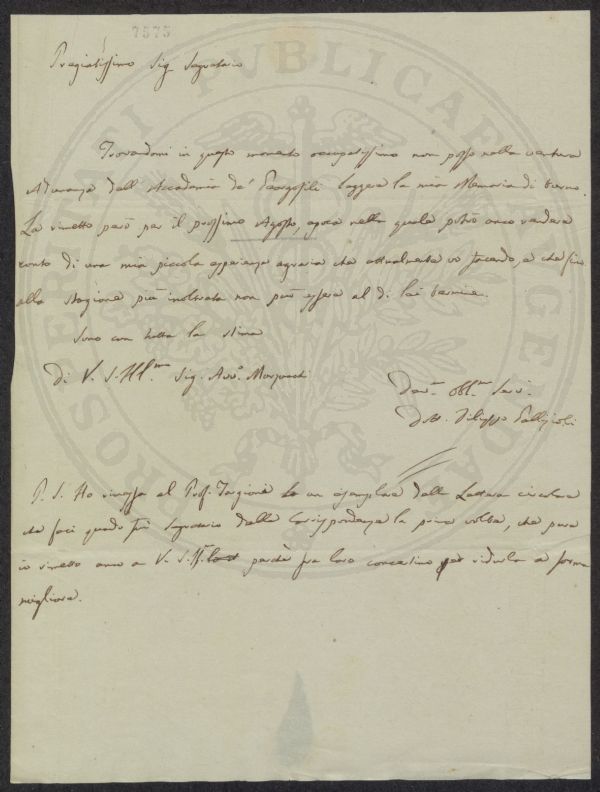 7575
Pregiatissimo Sig. Segretario
Trovandomi in questo momento occupatissimo non posso nella ventura
Adunanza dell'Accademia de' Georgofili leggere la mia Memoria di turno.
La rimetto però per il prossimo Agosto, epoca nella quale potrò anco rendere
conto di una mia piccola esperienza agraria che attualmente vo facendo, e che fino
alla stagione più inoltrata non può essere al di lei termine.
Sono con tutta la stima
Di V. S. Ill.ma Sig. Avv.o
Dev.mo Obbl.mo Serv.
Dott. Filippo Gallizioli
P. S. Ho rimesso al Prof. Targioni un esemplare della Lettera circolare
che feci quando fui Segretario delle Corrispondenze la prima volta, che pure
io rimetto anco a V. S. perchè fra loro concertino per ridurla a forma
migliore.
PROSPERITATI PUBLICAE AUGENDAE